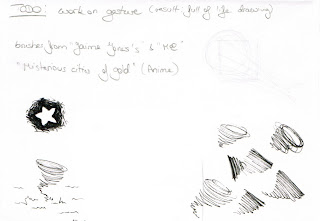 TODO: work on gesture (result full of life drawing)
brushes from "Jaime Jones's" & "MØ"
"Misterious cities of gold" (Anime)